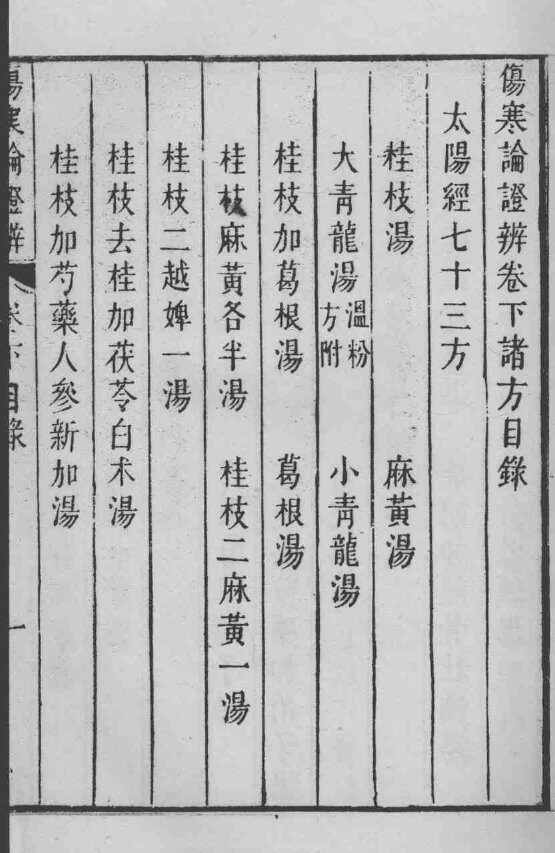 傷寒論證辨卷下諸方目錄
太陽經七十三方
桂枝湯　麻黃湯
大青龍湯溫粉方附　小青龍湯
桂枝加葛根湯　葛根湯
桂枝麻黃各半湯　桂枝二麻黃一湯
桂枝二越婢一湯
桂枝去桂加茯苓白朮湯
桂枝加芍藥人參新加湯
傷寒論證辨　卷下目錄　一